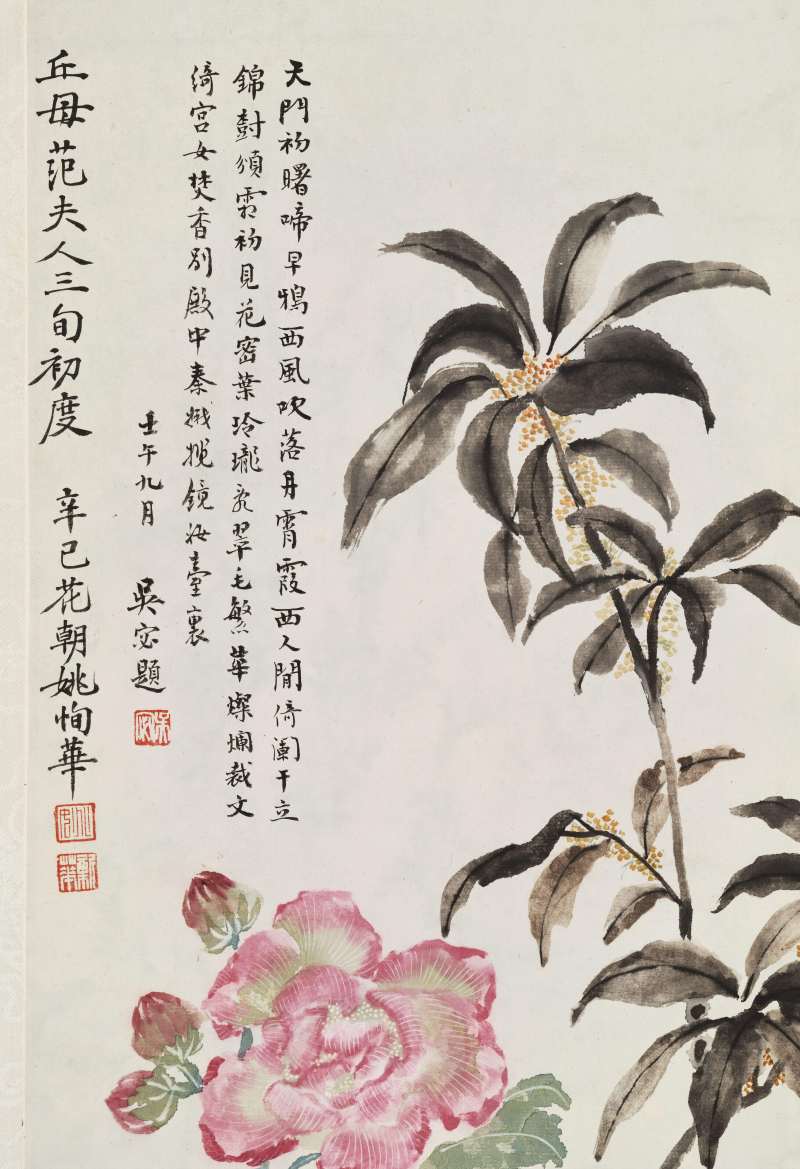 天門初曙啼早鴉西風吹落丹霄霞西人閒倚闌干立
錦樹須霜初見花密葉玲瓏翠毛繁華燦爛裁文
綺宮女焚香別殿中秦娥攬鏡妝臺裏
壬午九月 吳宓題
丘母范夫人三旬初度 辛巳花朝姚恂華